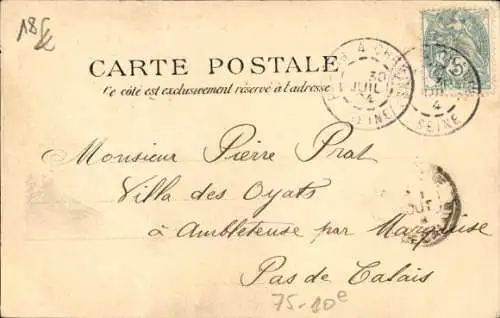 CARTE POSTALE
Ce côté est exclusivement réservé à l'adresse
30
JUIL
4
SEINE
4
SEINE
5
Monsieur Pierre Prat
Villa des Oyats
à Ambleteuse par Marquise
Pas de Calais
75-10e